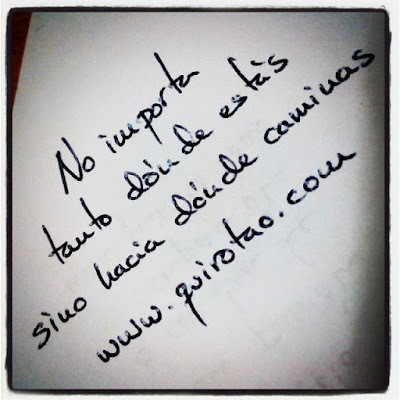 No importa
tanto dónde estás
sino hacia dónde caminas
www.quirotao.com